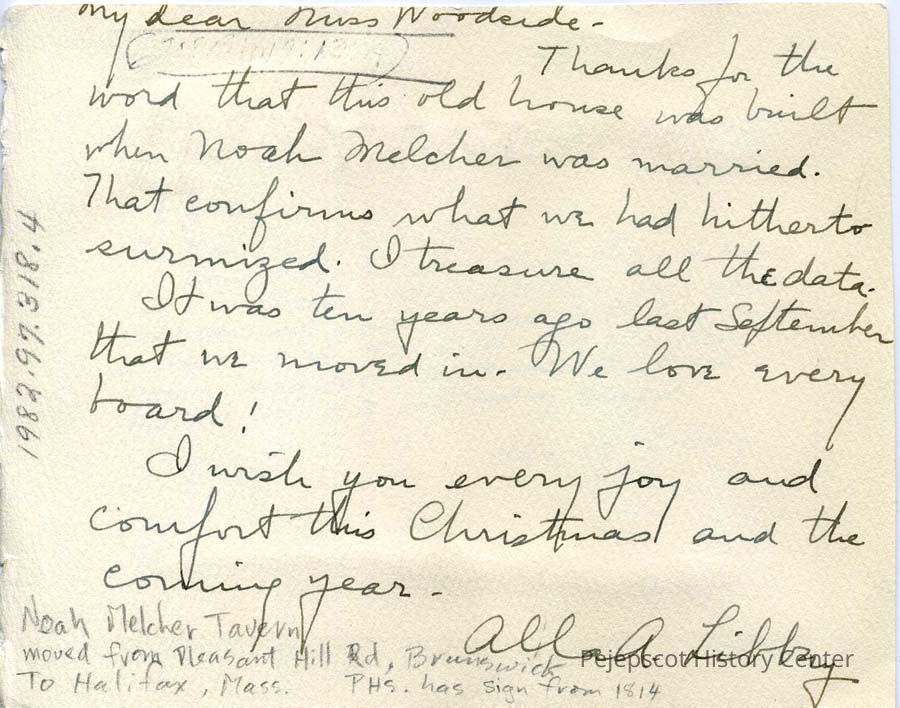 My dear Miss Woodside-
Thanks for the
word that this old house was built
when Noah Melcher was married.
That confirms what we had hitherto
surmized. I treasure all the data.
It was ten years ago last September
that we moved in. We love every
board!
I wish you every joy and
comfort this Christmas and the
coming year.
A. Libby
Noah Melcher Tavern
moved from Pleasant Hill Rd, Brunswick
To Halifax, Mass. PHS. has sign from 1814
Pejepscot History Center
1982.97.318.4